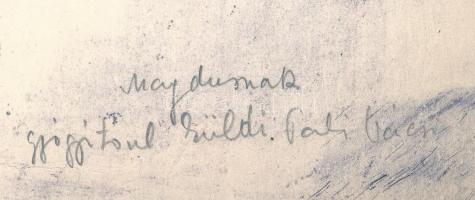 Magdusnak
gyógyítóul küldi Pali bácsi